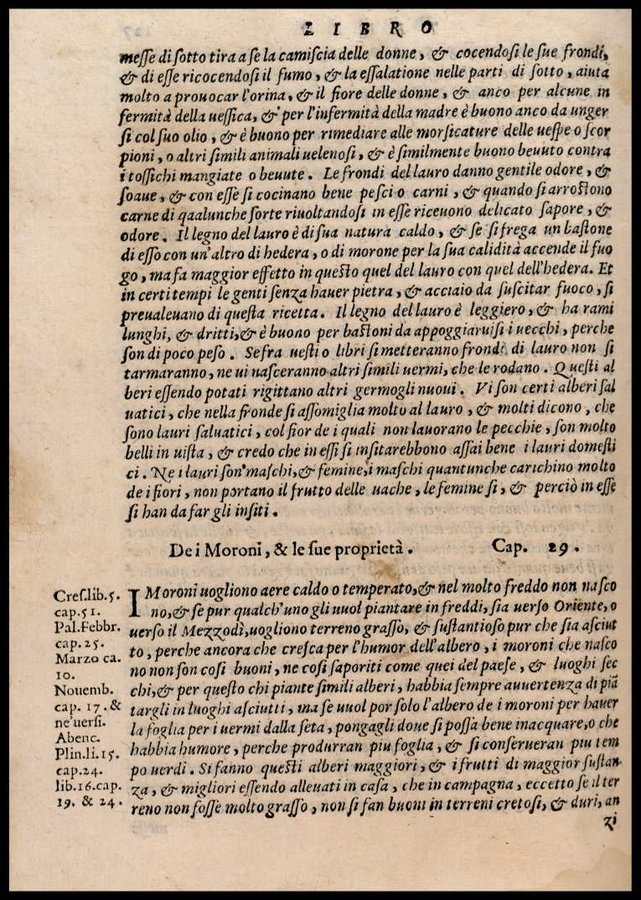 LIBRO
messe di sotto tira a se la camiscia delle donne, & cocendosi le sue frondi,
& di esse ricocendosi il fumo, & la essalatione nelle parti di sotto, aiuta
molto a prouocar l'orina, & il fiore delle donne, & anco per alcune in
fermità della uessica, & per l'infermità della madre è buono anco da unger
si col suo olio, & è buono per rimediare alle morsicature delle uespe o scor
pioni, o altri simili animali uelenosi, & è similmente buono beuuto contra
i tossichi mangiate o beuute. Le frondi del lauro danno gentile odore, &
soaue, & con esse si cocinano bene pesci o carni, & quando si arrostono
carne di qaalunche sorte riuoltandosi in esse riceuono delicato sapore, &
odore. Il legno del lauro è di sua natura caldo, & se si frega un bastone
di esso con un'altro di hedera, o di morone per la sua calidità accende il fuo
go, ma fa maggior effetto in questo quel del lauro con quel dell'hedera. Et
in certi tempi le genti senza hauer pietra, & acciaio da suscitar fuoco, si
preualeuano di questa ricetta. Il legno del lauro è leggiero, & ha rami
lunghi, & dritti, & è buono per bastoni da appoggiaruisi i uecchi, perche
son di poco peso. Se fra uesti o libri si metteranno frondi di lauro non si
tarmaranno, ne ui nasceranno altri simili uermi, che le rodano. Questi al
beri essendo potati rigittano altri germogli nuoui. Vi son certi alberi sal
uatici, che nella fronde si assomiglia molto al lauro, & molti dicono, che
sono lauri saluatici, col fior de i quali non lauorano le pecchie, son molto
belli in uista, & credo che in essi si insitarebbono assai bene i lauri domesti
ci. Ne i lauri son maschi, & femine, i maschi quantunche carichino molto
de i fiori, non portano il frutto delle uache, le femine si, & perciò in esse
si han da far gli insiti.
De i Moroni, & le sue proprietà. Cap. 29.
I MORONI uogliono aere caldo o temperato, & nel molto freddo non nasco
no, & se pur qualch'uno gli uuol piantare in freddi, sia uerso Oriente, o
uerso il Mezzodì, uogliono terreno grasso, & sustantioso pur che sia asciut
to, perche ancora che cresca per l'humor dell'albero, i moroni che nasco
no non son cosi buoni, ne cosi saporiti come quei del paese, & luoghi sec
chi, & per questo chi piante simili alberi, habbia sempre auuertenza di piā
targli in luoghi asciutti, ma se uuol por solo l'albero de i moroni per hauer
la foglia per i uermi dalla seta, pongagli doue si possa bene inacquare, o che
habbia humore, perche produrran piu foglia, & si conserueran piu tem
po uerdi. Si fanno questi alberi maggiori, & i frutti di maggior sustan
za, & migliori essendo alleuati in casa, che in campagna, eccetto se il ter
reno non fosse molto grasso, non si fan buoni in terreni cretosi, & duri, an
zi
Cres.lib.5.
cap.51.
Pal.Febbr.
cap.25.
Marzo ca.
10.
Nouemb.
cap. 17. &
ne'uersi.
Abenc.
Plin.li.15.
cap.24.
lib.16.cap.
19. & 24.